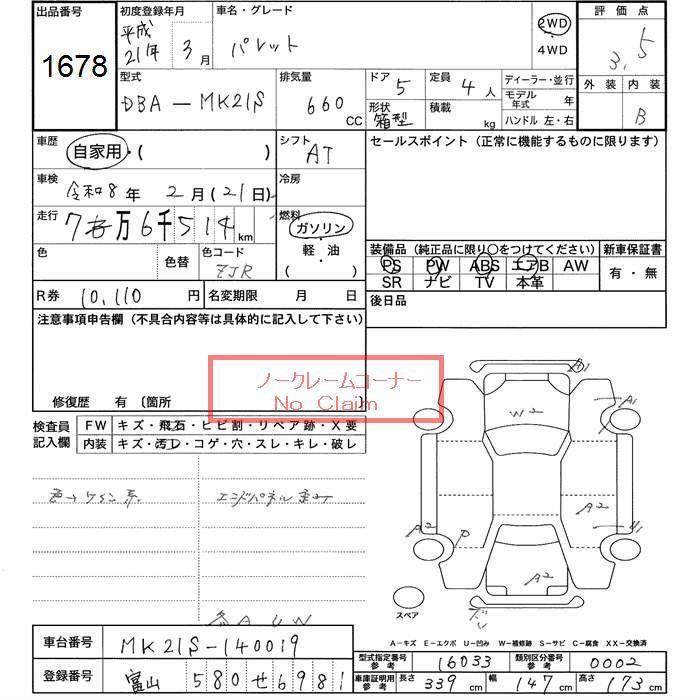 出品番号
1678
初度登録年月
平成 21年 3月
車名・グレード
パレット
2WD
4WD
評価点
3.5
外装 内装
B
型式
DBA-MK21S
排気量
660 CC
ドア 5
定員 4人
形状 箱型
積載 kg
ディーラー・並行
モデル年式 年
ハンドル 左・右
車歴
自家用・( )
シフト
AT
セールスポイント (正常に機能するものに限ります)
車検
令和8年 2月(21日)
冷房
走行
7万6千514km
燃料
ガソリン
軽・油
( )
色
色替
色コード
ZJR
装備品 (純正品に限り○をつけてください)
PS PW ABS エアB AW
SR ナビ TV 本革
新車保証書
有・無
R券 10,110円
名変期限 月 日
後日品
注意事項申告欄 (不具合内容等は具体的に記入して下さい)
修復歴 有 (箇所
ノークレームコーナー
No Claim
検査員記入欄
FW キズ・飛石・ヒビ割・リペア跡・X要
内装 キズ・汚D・コゲ・穴・スレ・キレ・破レ
色→ワイン系
各AUW
A1
W2
A1
A2
A2
P
U1
A2
スペア
A-キズ E-エクボ U-凹み W-補修跡 S-サビ C-腐食 XX-交換済
車台番号
MK21S-140019
登録番号
富山 580 せ 6981
型式指定番号 参考
16033
類別区分番号 参考
0002
車庫証明用 参考
長さ 339 cm 幅 147 cm 高さ 173 cm